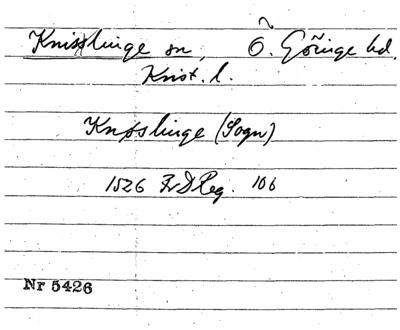 Knisslinge sn, Ö. Göinge hd.
Krist. l.
Knisslinge (Sogn)
1526 Fr D Reg. 106
Nr 5426